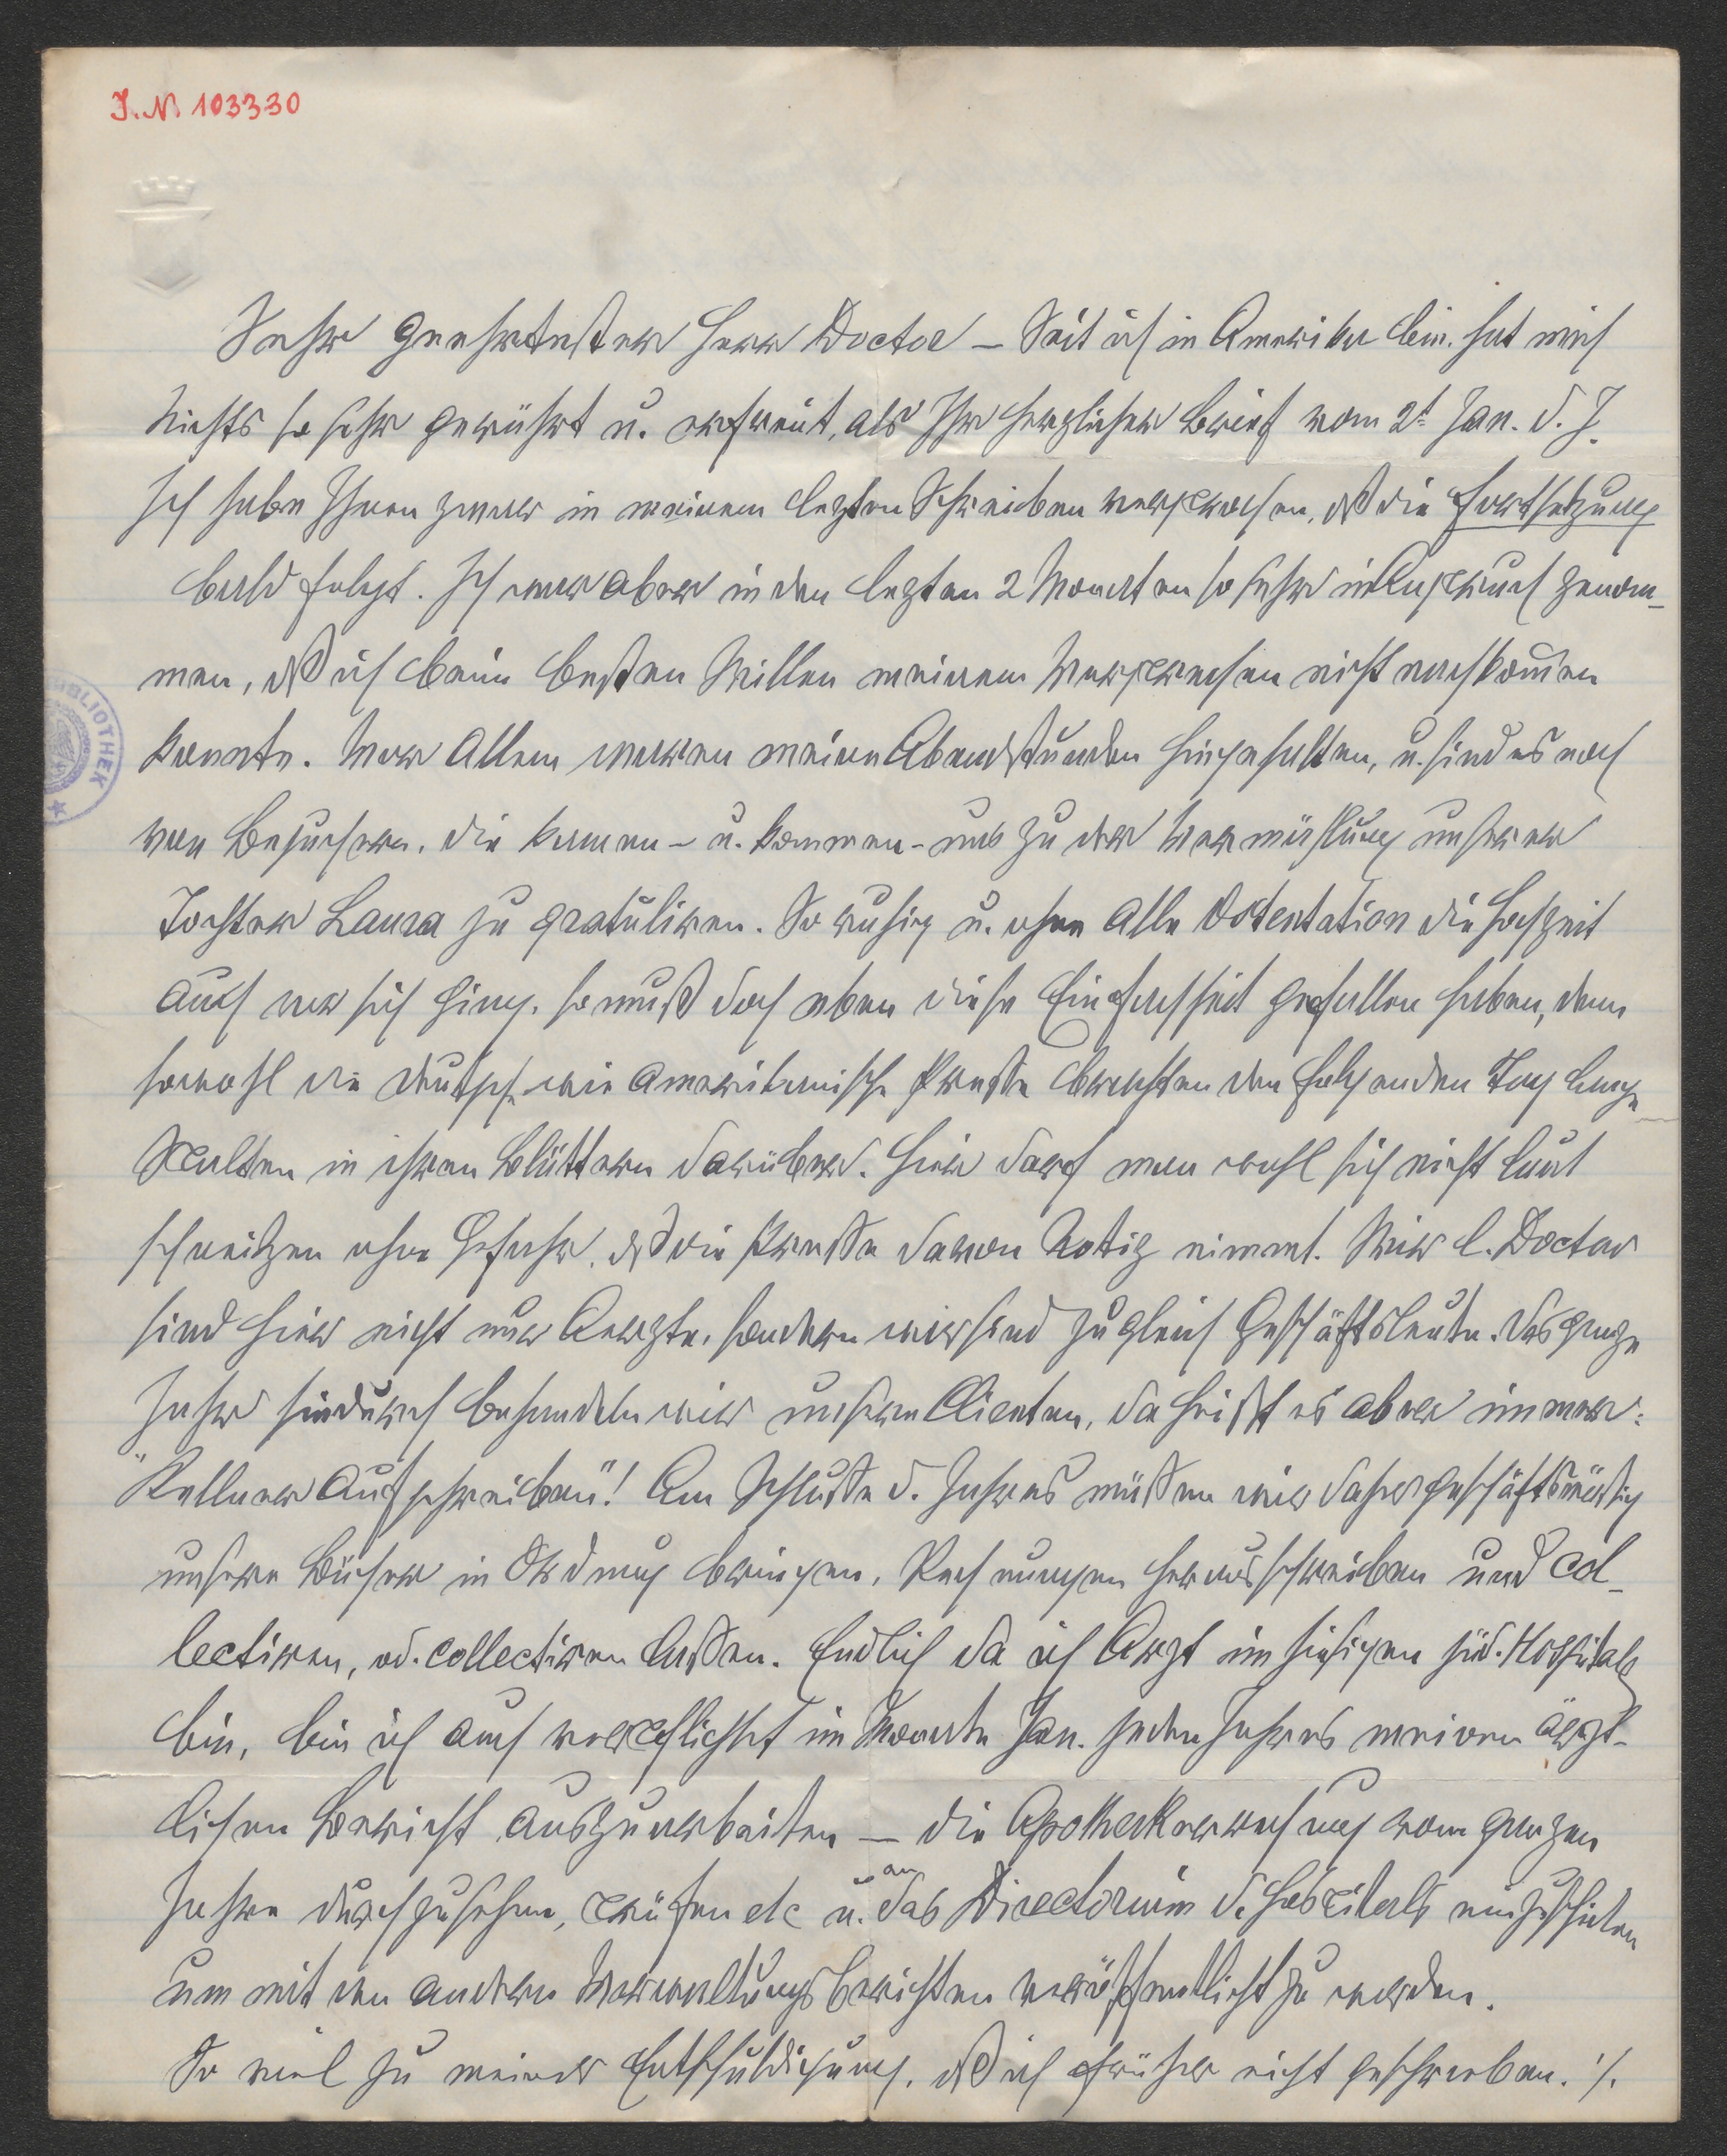 I. N. 103330
Sehr geehrtester Herr Doctor – Seit ich in Amerika bin, hat mich
Nichts so sehr gerührt u. erfreut, als Ihr herzlicher Brief vom 2t Jan. d. J.
Ich habe Ihnen zwar in meinem letzten Schreiben versprochen, dß die Fortsetzung
bald folgt. Ich war aber in den letzten 2 Monaten so sehr in Anspruch genom-
men, dß ich beim besten Willen meinem Versprechen nicht nachkom̄en
konnte. Vor Allem waren meine Abendstunden hingehalten, u. sind es noch
von Besuchern, die kamen – u. kommen – uns zu der Vermählung unserer
Tochter Laura zu gratuliren. So ruhig u. ohne alle Ostentation die Hochzeit
auch vor sich ging, so muß doch eben diese Einfachheit gefallen haben, denn
sowohl die deutsch. wie amerikanische Presse brachten den folgenden Tag lange
Spalten in ihren Blättern darüber. Hier darf man wohl sich nicht laut
schneitzen ohne Gefahr, dß die Presse davon Notiz nimmt. Wir l. Doctor
sind hier nicht nur Aerzte, sondern wir sind zugleich Geschäftsleute. Das ganze
Jahr hindurch behandeln wir unsere Clienten, da heißt es aber immer:
"Kellner aufschreiben"! Am Schluße d. Jahres müßen wir daher geschäftsmäßig
unsere Bücher in Ordnung bringen, Rechnungen herausschreiben und col-
lectiren, od. collectiren laßen. Endlich da ich Arzt im hiesigen jüd. Hospitale
bin, bin ich auch verpflichtet im Monate Jan. jeden Jahres meinen ärzt-
lichen Bericht auszuarbeiten – die Apothekerrechnung vom ganzen
Jahre durchzusehen, prüfen etc u. an das Directorium d. Hospitals einzuschicken
um mit den andern Verwaltungsberichten veröffentlicht zu werden.
So viel zu meiner Entschuldigung, dß ich früher nicht geschrieben. ./.
BIBLIOTHEK